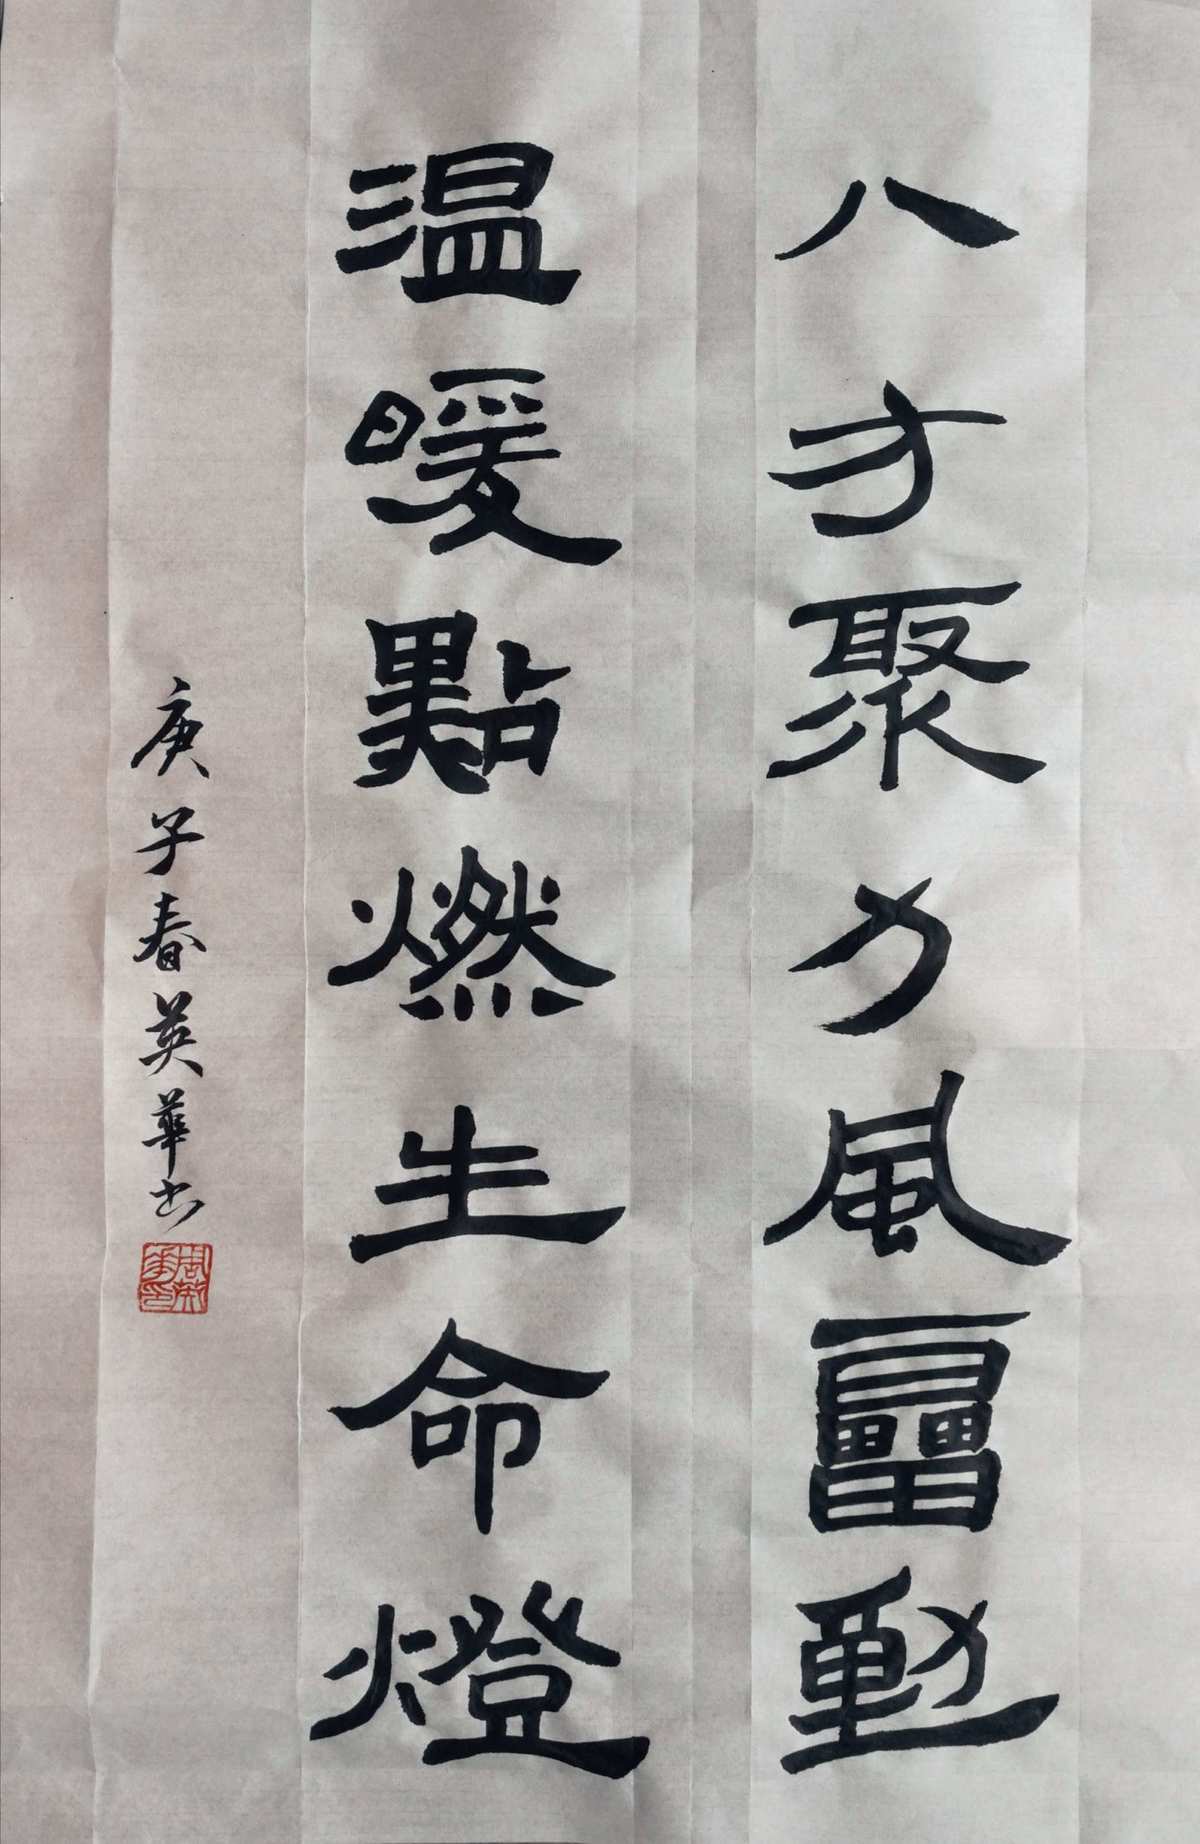 八方聚力風雷動
温暖點燃生命燈
庚子春英華书